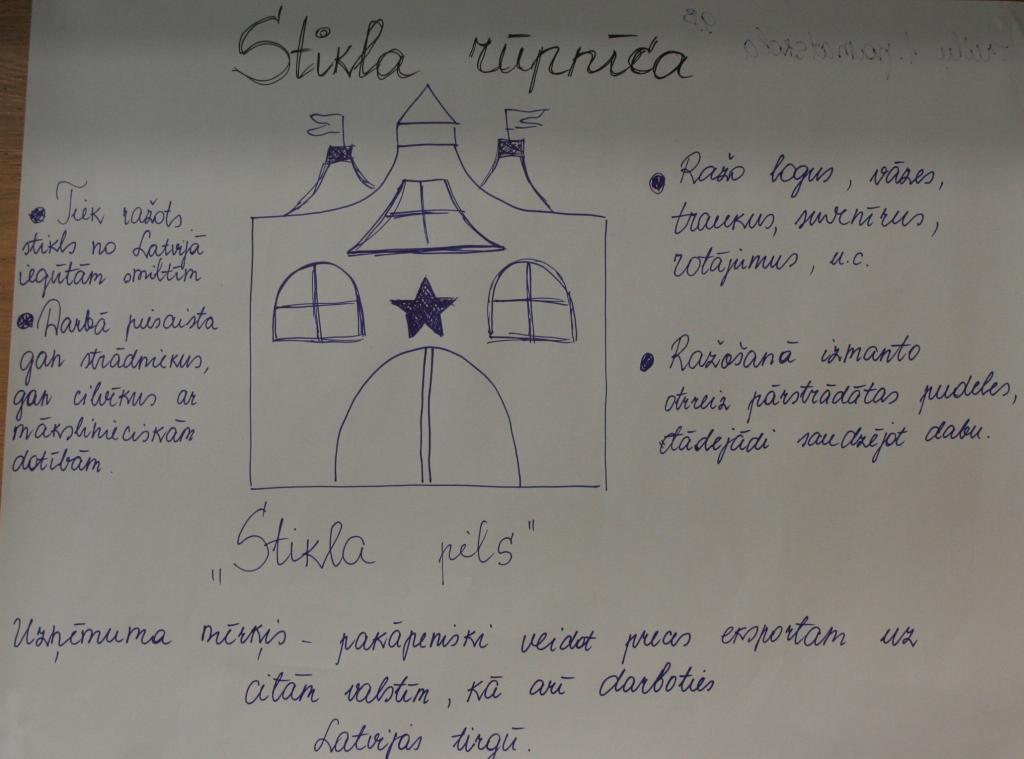 Stikla rūpnīca
• Tiek ražots
stikls no Latvijā
iegūtām smiltīm
• Darbā piesaista
gan strādniekus,
gan cilvēkus ar
mākslinieciskām
dotībām.
• Ražo logus, vāzes,
traukus, suvenīrus,
rotājumus, u.c.
• Ražošanā izmanto
otrreiz pārstrādātas pudeles,
tādejādi saudzējot dabu.
„Stikla pils"
Uzņēmuma mērķis – pakāpeniski veidot preces eksportam uz
citām valstīm, kā arī darboties
Latvijas tirgū.